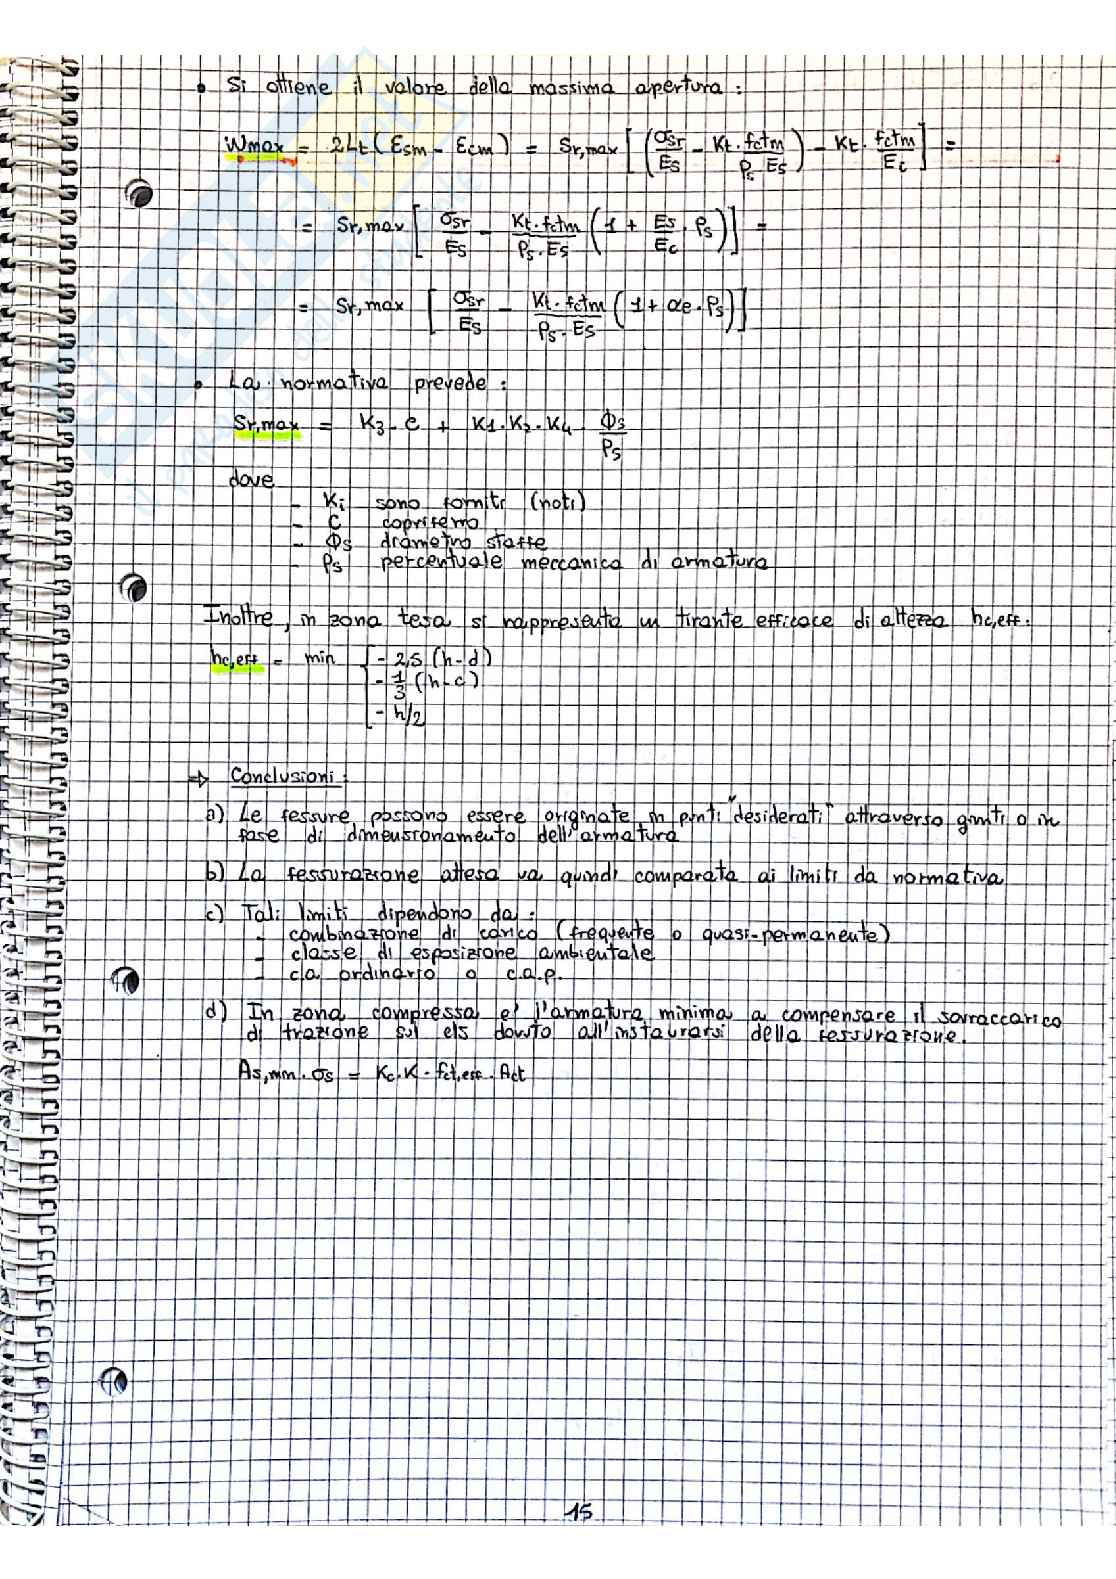 • Si ottiene il valore della massima apertura :
Wmax = 2Lt ( εsm - εcm ) = Sr,max [ ( σsr/Es - Kt · fctm/(ρs · Es) ) - Kt · fctm/Ec ] =
= Sr,max [ σsr/Es - Kt · fctm/(ρs · Es) ( 1 + Es/Ec · ρs ) ] =
= Sr,max [ σsr/Es - Kt · fctm/(ρs · Es) ( 1 + αe · ρs ) ]
• La normativa prevede :
Sr,max = K3 · c + K1 · K2 · K4 Φs/ρs
dove
- Ki sono forniti (noti)
- C copriferro
- Φs diametro staffe
- ρs percentuale meccanica di armatura
Inoltre, in zona tesa si rappresenta un tirante efficace di altezza hc,eff.
hc,eff = min { - 2,5 (h-d)
- 1/3 (h-c)
- h/2
⇒ Conclusioni :
a) Le fessure possono essere originate in punti "desiderati" attraverso giunti o in
fase di dimensionamento dell'armatura
b) La fessurazione attesa va quindi comparata ai limiti da normativa
c) Tali limiti dipendono da :
- combinazione di carico (frequente o quasi-permanente)
- classe di esposizione ambientale
- ca ordinario o c.a.p.
d) In zona compressa e' l'armatura minima a compensare il sovraccarico
di trazione sul cls dovuto all'instaurarsi della fessurazione.
As,min · σs = Kc · K · fct,eff · Act
15